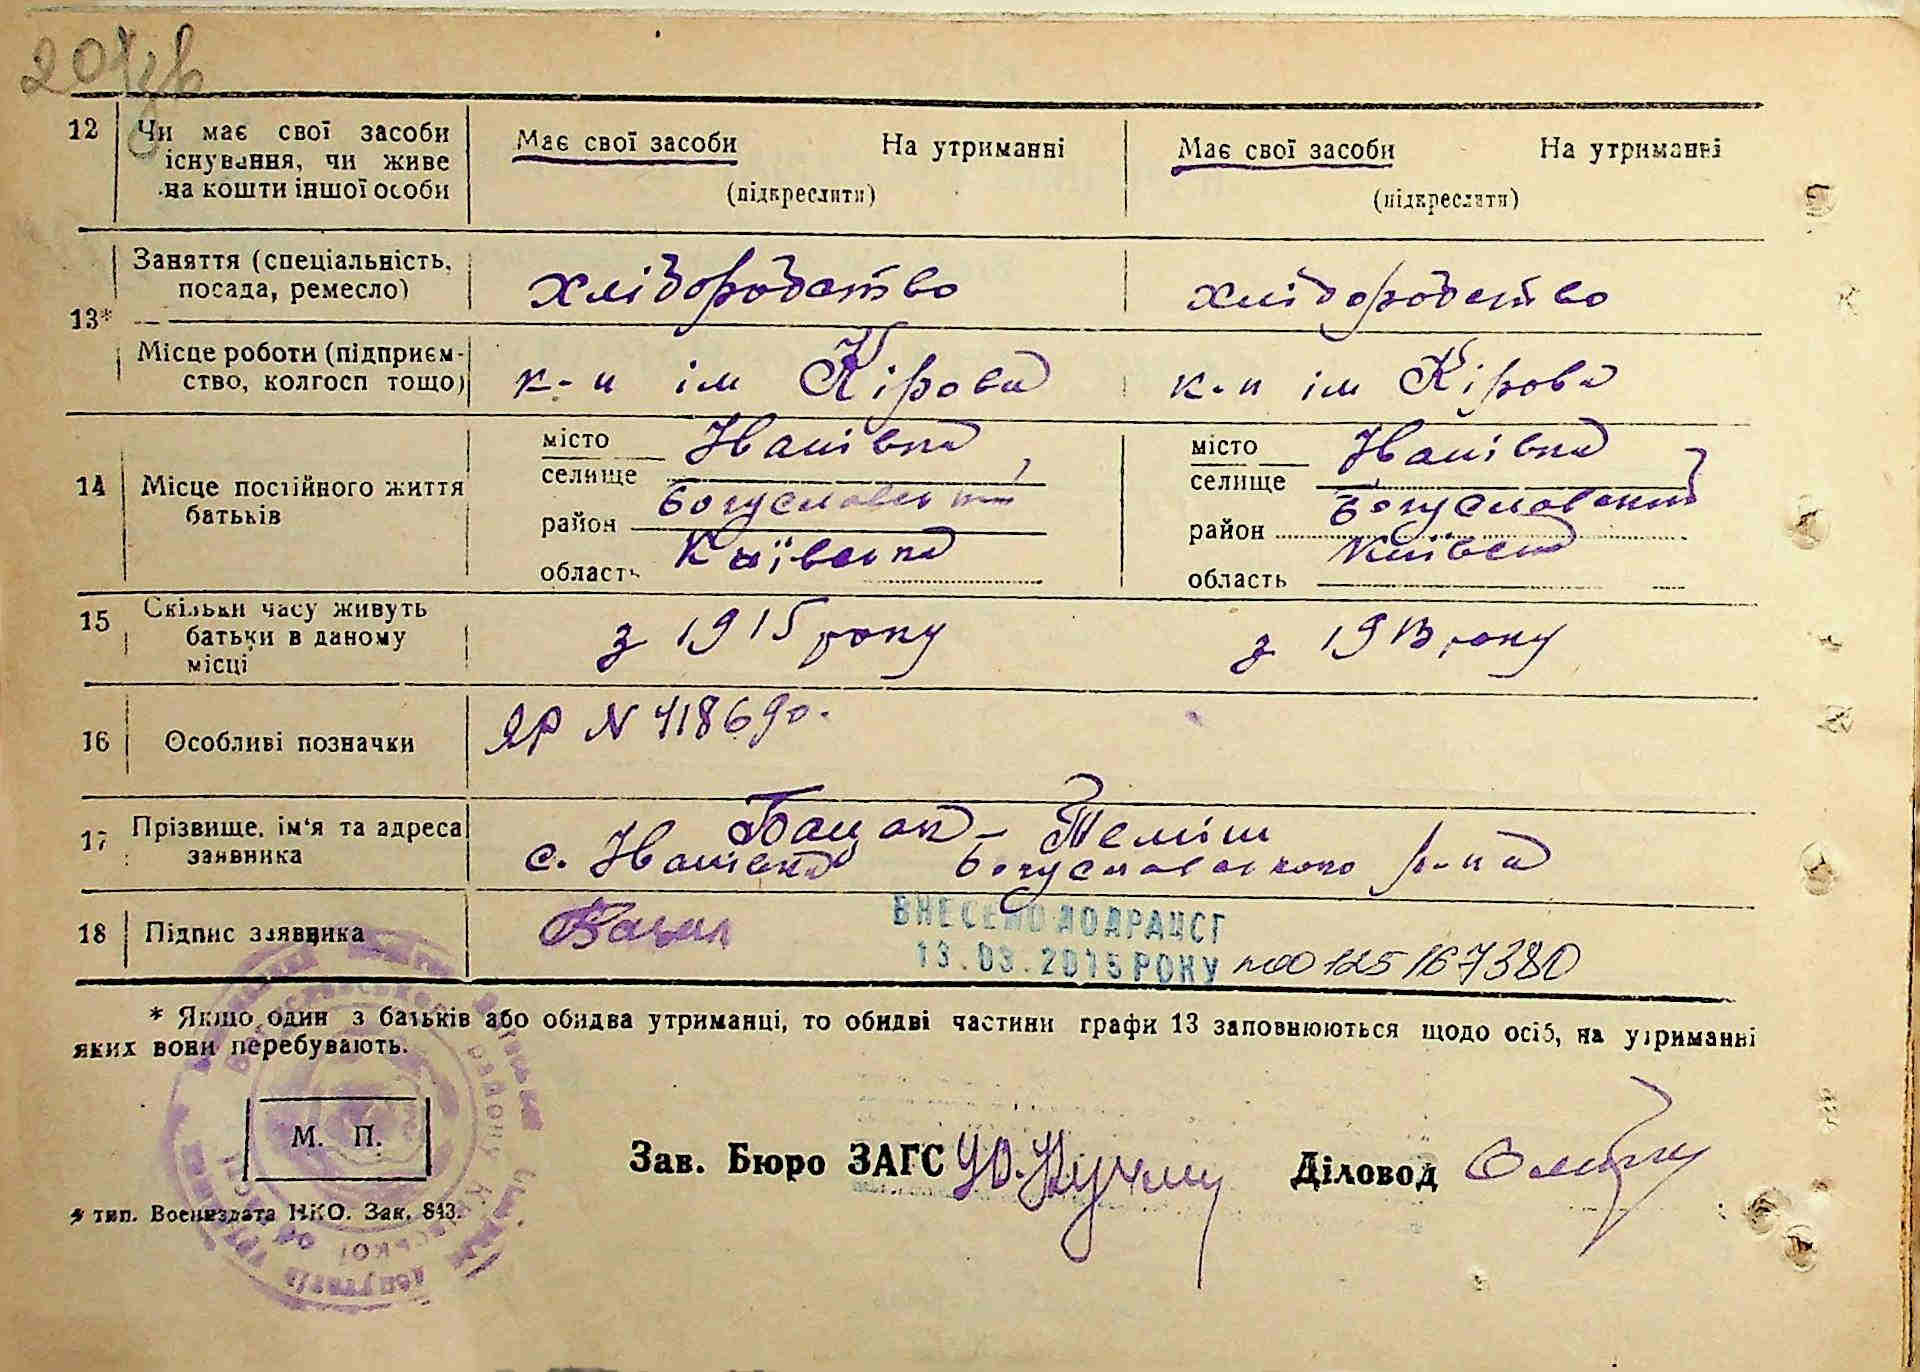 12 Чи має свої засоби Має свої засоби На утриманні Має свої засоби На утриманні
існування, чи живе
на кошти іншої особи (підкреслити) (підкреслити)
Заняття (спеціальність, хліборобство хліборобство
посада, ремесло)
13*
Місце роботи (підприєм-
ство, колгосп тощо) к-п ім Кірова к-п ім Кірова
місто місто
селище селище
14 Місце постійного життя Богуславський Богуславський
батьків район район
Київська Київська
область область
15 Скільки часу живуть
батьки в даному з 1915 року з 1913 року
місці
16 Особливі позначки ЯР N 418690.
17 Прізвище, ім'я та адреса
заявника с. Богуславського р-на
18 Підпис заявника
ВНЕСЕНО ДО ДРАЦСГ
13.03.2015 РОКУ 00125167380
* Якщо один з батьків або обидва утриманці, то обидві частини графи 13 заповнюються щодо осіб, на утриманні
яких вони перебувають.
М. П.
Зав. Бюро ЗАГС Діловод
тип. Воениздата НКО. Зак. 843.